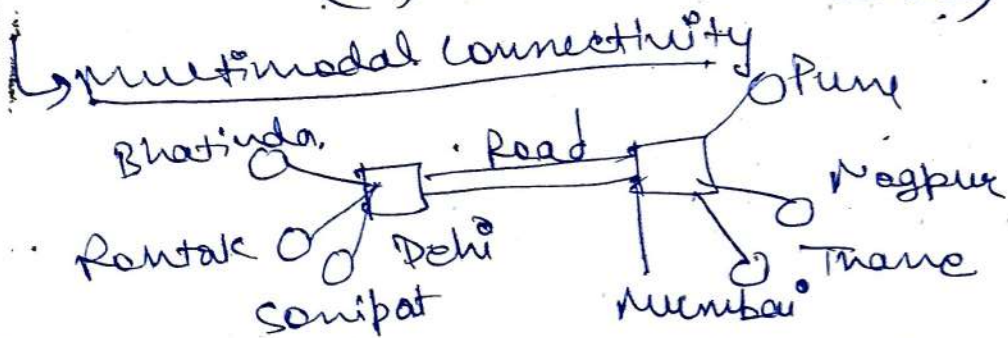 ↳ multimodal connectivity
Pune
Bhatinda. Road
Nagpur
Rohtak Dehi Thane
Sonipat Mumbai